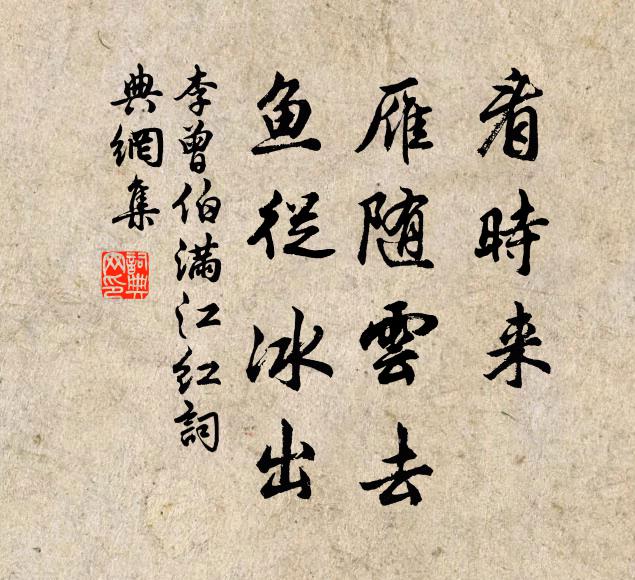 看時来
雁随雲去
鱼從冰出
李曾伯满江红詞
典網集
詞典
网印